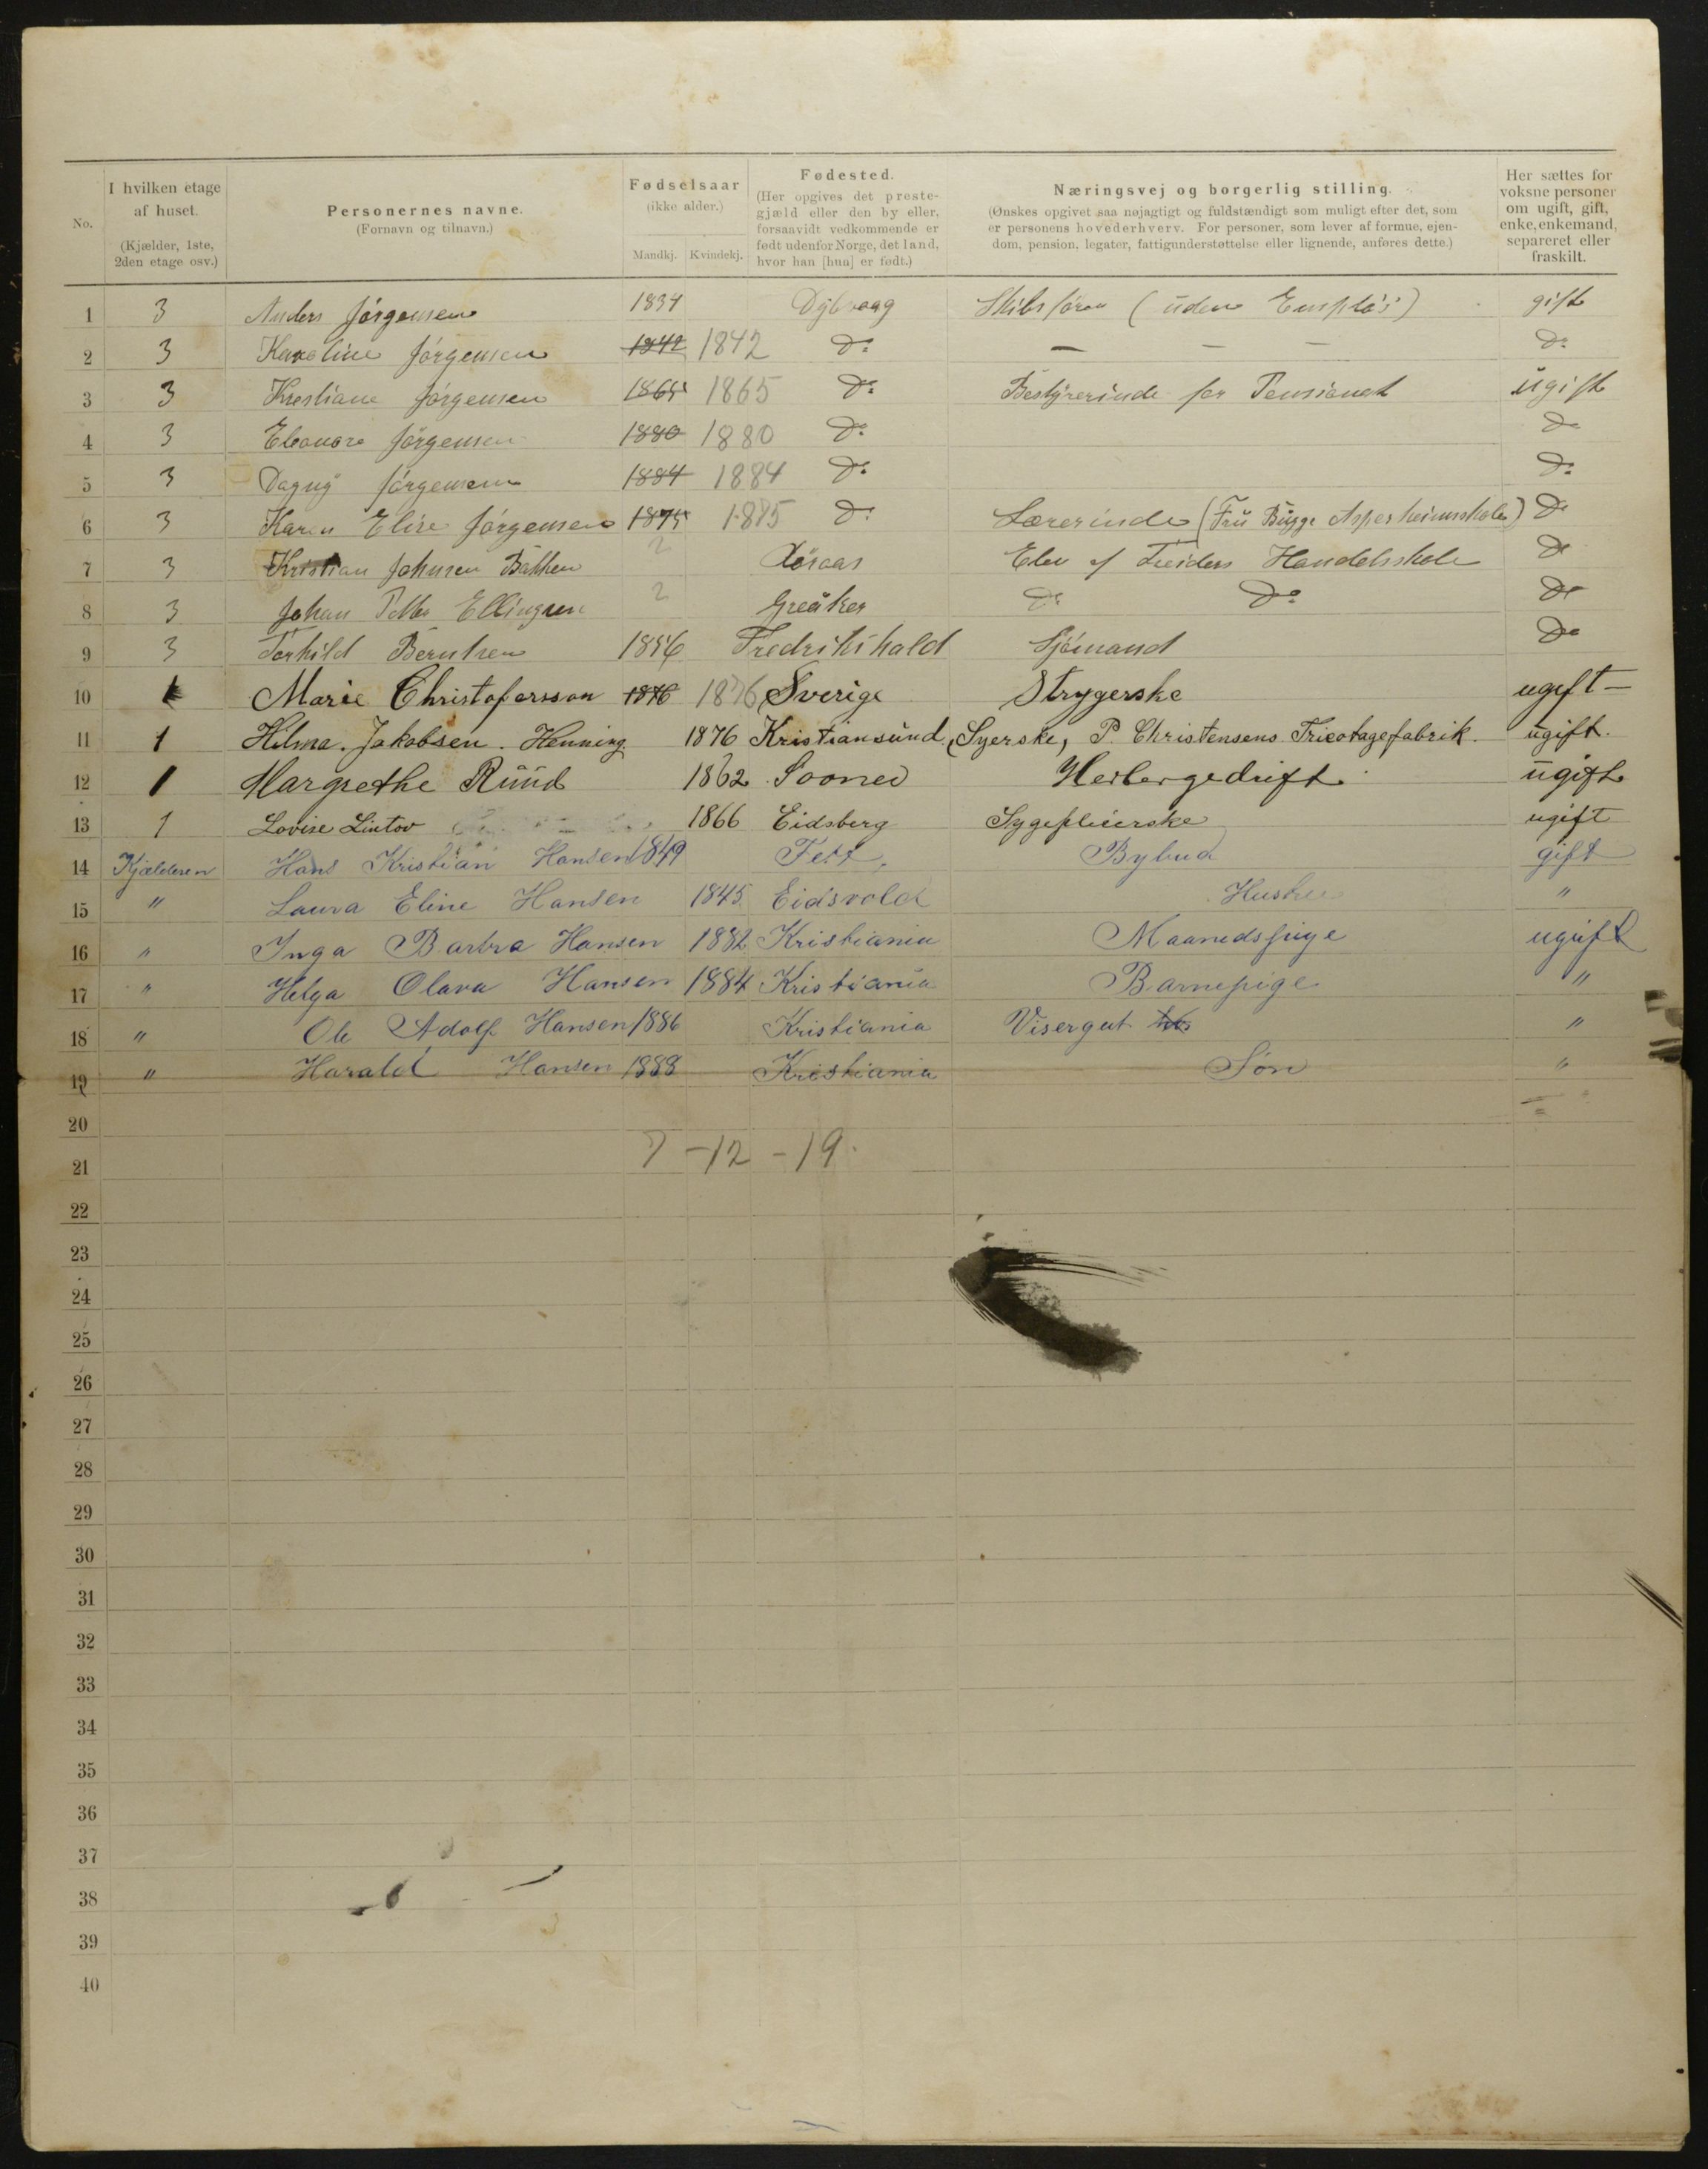 No. I hvilken etage af huset. (Kjælder, 1ste, 2den etage osv.) Personernes navne. (Fornavn og tilnavn.) Fødselsaar (ikke alder.) Mandkj. Kvindekj. Fødested. (Her opgives det prestegjæld eller den by eller, forsaavidt vedkommende er født udenfor Norge, det land, hvor han [hun] er født.) Næringsvej og borgerlig stilling. (Ønskes opgivet saa nøjagtigt og fuldstændigt som muligt efter det, som er personens hovederhverv. For personer, som lever af formue, ejendom, pension, legater, fattigunderstøttelse eller lignende, anføres dette.) Her sættes for voksne personer om ugift, gift, enke, enkemand, separeret eller fraskilt.
1 3 Anders Jörgensen 1834 Dybvaag Skibsförer (uden gift
2 3 Karoline Jörgensen 1842 1842 Do — — — Do
3 3 Krestiane Jörgensen 1865 1865 Do Bestyrerinde for Pensionat ugift
4 3 Eleonore Jörgensen 1880 1880 Do Do
5 3 Dagny Jörgensen 1884 1884 Do Do
6 3 Karen Elise Jörgensen 1875 Do Lærerinde (Fru Bugge Do
7 3 Kristian Johnsen 2 Elev af Treiders Handelsskole Do
8 3 Johan Ellingsen 2 Greåker Do Do Do
9 3 Torhild Berntsen 1856 Fredrikshald Sjömand Do
10 1 Marie Christofersson 1876 1876 Sverige Strygerske ugift —
11 1 Hilma. Jakobsen. Henning. 1876 Kristiansund, Syerske, P. Christensens Tricotagefabrik. ugift.
12 1 Margrethe Ruud 1862 Sooner Herbergedrift ugift
13 1 Lovise Lintov 1866 Eidsberg Sygepleierske ugift
14 Kjælderen Hans Kristian Hansen 1849 Fett, Bybud gift
15 " Laura Eline Hansen 1845 Eidsvold Hustru "
16 " Inga Barbra Hansen 1882 Kristiania Maanedspige ugift
17 " Helga Olava Hansen 1884 Kristiania Barnepige "
18 " Ole Adolf Hansen 1886 Kristiania Visergut "
19 " Harald Hansen 1888 Kristiania Søn "
20
7 - 12 - 19.
21
22
23
24
25
26
27
28
29
30
31
32
33
34
35
36
37
38
39
40